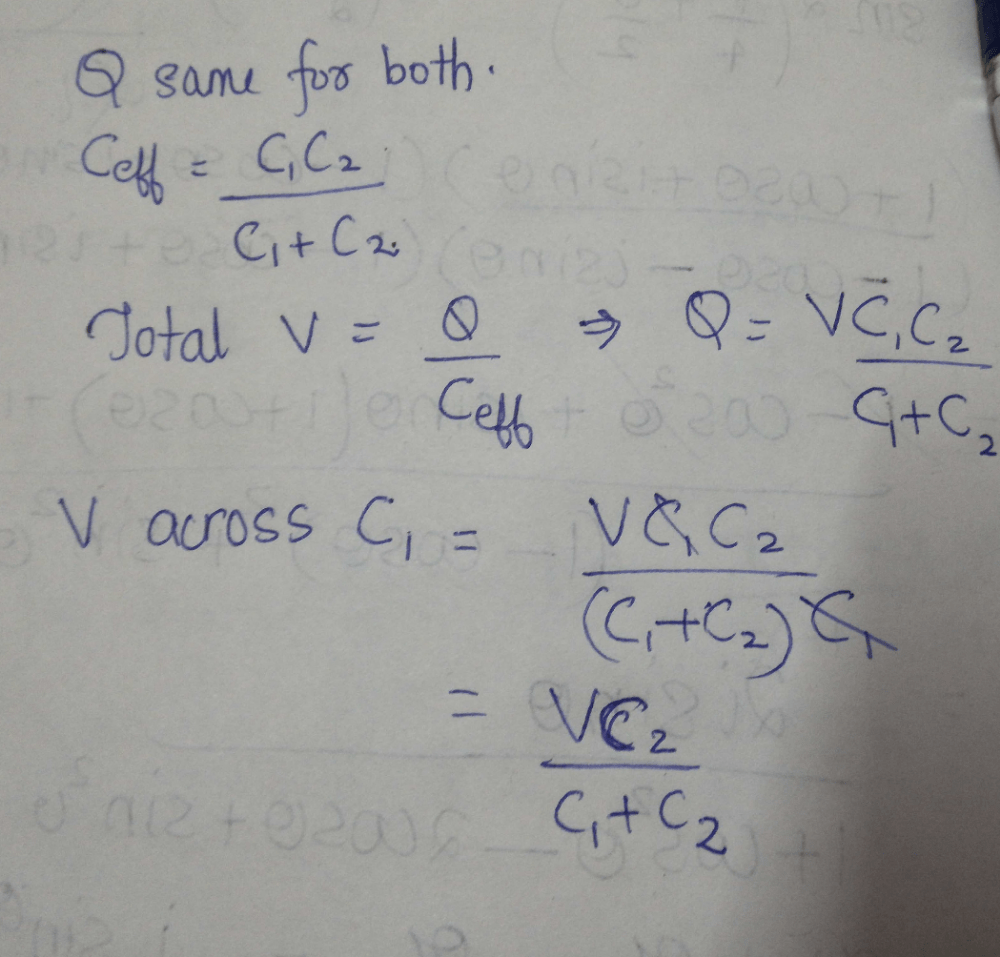 Q same for both.
Ceff = C₁C₂
C₁ + C₂.
Total V = Q ⇒ Q = VC₁C₂
Ceff C₁+C₂
V across C₁ = VC₁C₂
(C₁+C₂) C₁
= VC₂
C₁+C₂